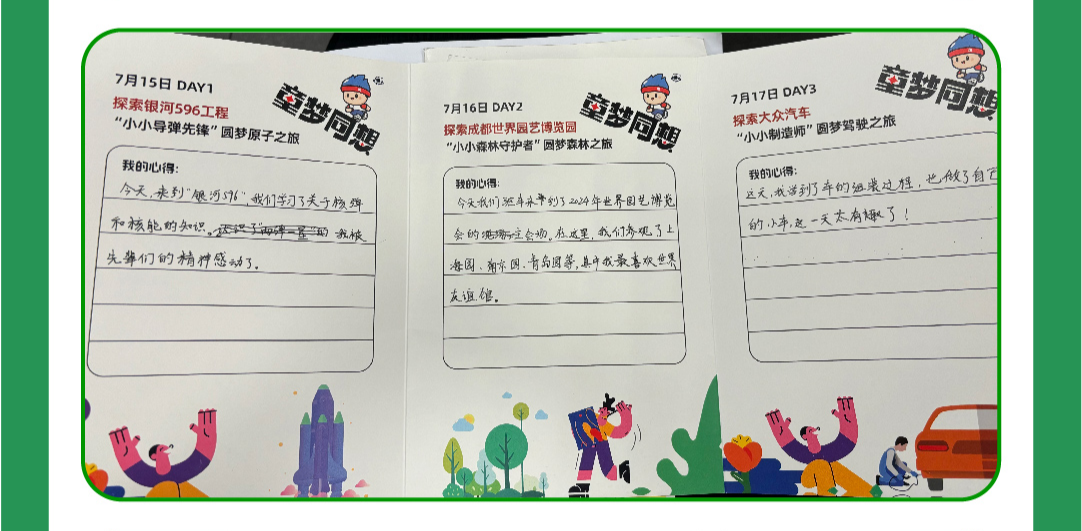 7月15日 DAY1
童梦同想
探索银河596工程
“小小导弹先锋”圆梦原子之旅
我的心得:
今天,来到“银河596”,我们学习了关于核弹
和核能的知识。还识了“两弹一星”的 我被
先辈们的精神感动了。
7月16日 DAY2
童梦同想
探索成都世界园艺博览园
“小小森林守护者”圆梦森林之旅
我的心得:
今天我们 来到了2024年世界园艺博览
会的 主会场。在这里,我们参观了上
海园、南京园、青岛园等,其中我最喜欢世界
友谊馆。
7月17日 DAY3
童梦同想
探索大众汽车
“小小制造师”圆梦驾驶之旅
我的心得:
这天,我学到了车的组装过程,也做了自己
的小车,这一天太有趣了!